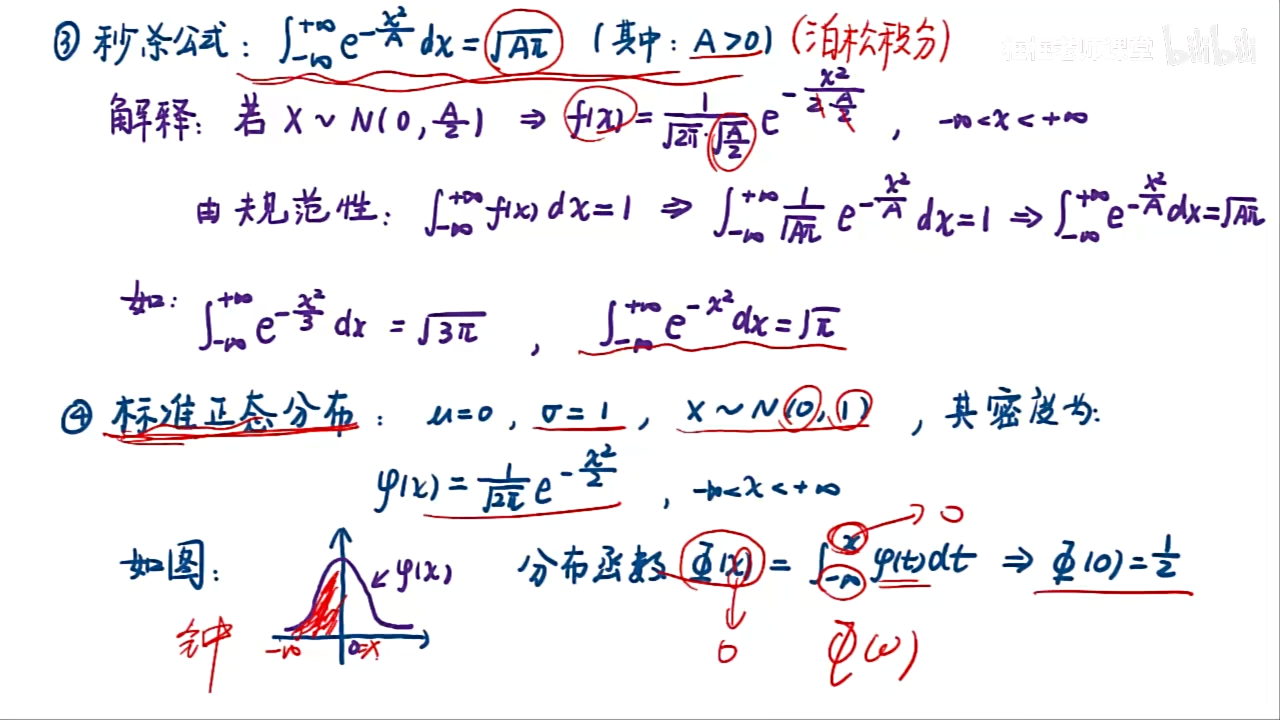 ③ 秒杀公式: ∫_{-∞}^{+∞} e^{-x²/A} dx = √(Aπ) (其中: A>0) (泊松积分)
bilibili
解释: 若 X ~ N(0, A/2) ⇒ f(x) = 1/(√(2π)·√(A/2)) e^{-x²/(2·A/2)}, -∞<x<+∞
由规范性: ∫_{-∞}^{+∞} f(x) dx = 1 ⇒ ∫_{-∞}^{+∞} 1/√(Aπ) e^{-x²/A} dx = 1 ⇒ ∫_{-∞}^{+∞} e^{-x²/A} dx = √(Aπ)
如: ∫_{-∞}^{+∞} e^{-x²/3} dx = √(3π), ∫_{-∞}^{+∞} e^{-x²} dx = √π
④ 标准正态分布: μ=0, σ=1, X ~ N(0, 1), 其密度为:
φ(x) = 1/√(2π) e^{-x²/2}, -∞<x<+∞
如图: φ(x) 分布函数 Φ(x) = ∫_{-∞}^{x} φ(t)dt ⇒ Φ(0) = 1/2
0
钟 -∞ 0=x 0 Φ(0)